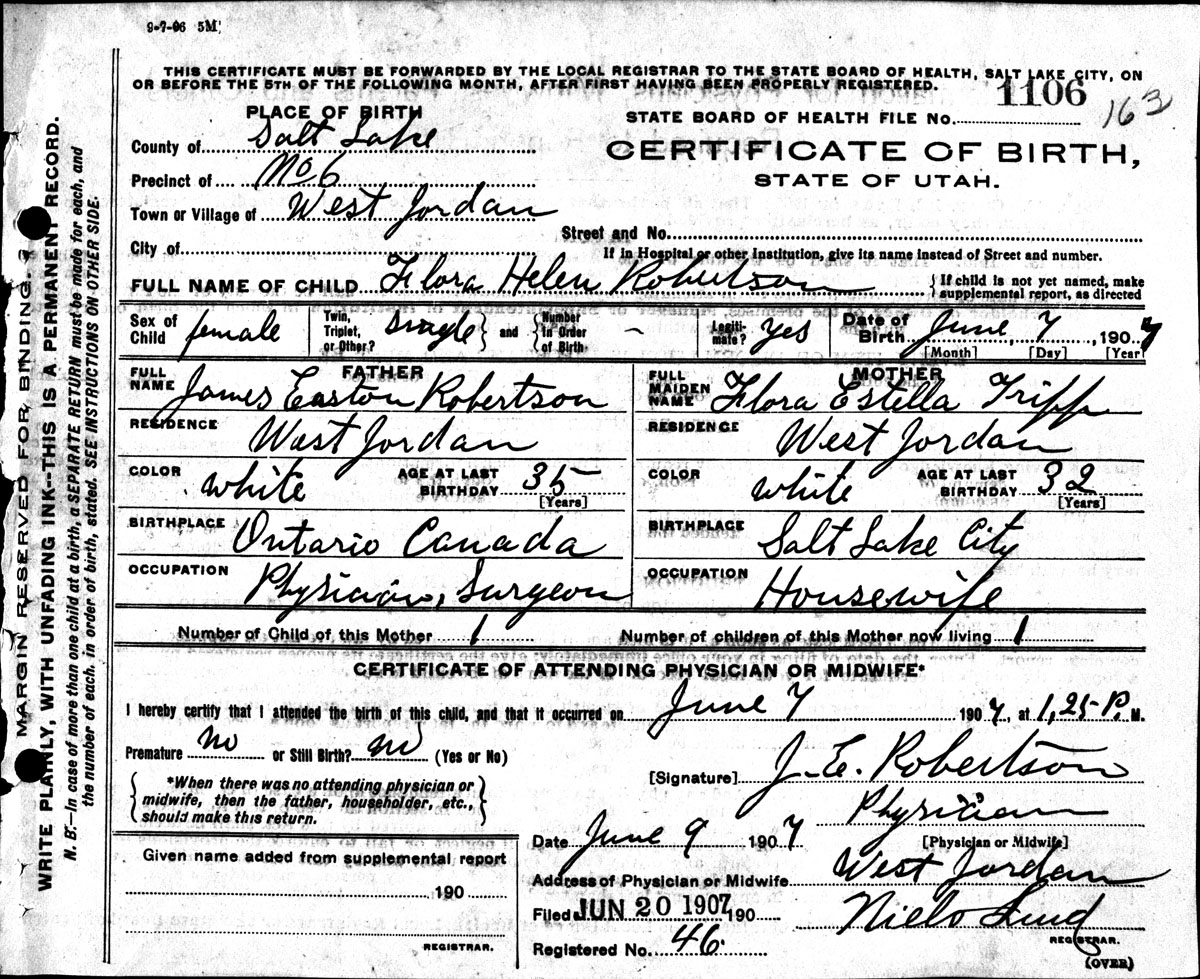 9-7-06 5M
THIS CERTIFICATE MUST BE FORWARDED BY THE LOCAL REGISTRAR TO THE STATE BOARD OF HEALTH, SALT LAKE CITY, ON
OR BEFORE THE 5TH OF THE FOLLOWING MONTH, AFTER FIRST HAVING BEEN PROPERLY REGISTERED.
PLACE OF BIRTH
STATE BOARD OF HEALTH FILE No. 1106 163
County of Salt Lake
CERTIFICATE OF BIRTH,
Precinct of No 6
STATE OF UTAH.
Town or Village of West Jordan
Street and No.
City of
If in Hospital or other Institution, give its name instead of Street and number.
FULL NAME OF CHILD Flora Helen Robertson
{If child is not yet named, make
supplemental report, as directed
Sex of Child female
Twin, Triplet, or Other? single } and { Number in Order of Birth -
Legitimate? yes
Date of Birth June, 7, 1907
[Month] [Day] [Year]
FATHER
FULL NAME James Easton Robertson
RESIDENCE West Jordan
COLOR white AGE AT LAST BIRTHDAY 35
[Years]
BIRTHPLACE Ontario Canada
OCCUPATION Physician, Surgeon
MOTHER
FULL MAIDEN NAME Flora Estella Tripp
RESIDENCE West Jordan
COLOR white AGE AT LAST BIRTHDAY 32
[Years]
BIRTHPLACE Salt Lake City
OCCUPATION Housewife
Number of Child of this Mother 1 Number of children of this Mother now living 1
CERTIFICATE OF ATTENDING PHYSICIAN OR MIDWIFE*
I hereby certify that I attended the birth of this child, and that it occurred on June 7 1907, at 1,25 P. M.
Premature no or Still Birth? no (Yes or No)
*When there was no attending physician or
midwife, then the father, householder, etc.,
should make this return.
[Signature] J. E. Robertson
Physician
[Physician or Midwife]
Date June 9 1907
Address of Physician or Midwife West Jordan
Filed JUN 20 1907 190
Niels Lind
REGISTRAR.
Registered No. 46.
(OVER)
Given name added from supplemental report
190
REGISTRAR.
MARGIN RESERVED FOR BINDING.
WRITE PLAINLY, WITH UNFADING INK--THIS IS A PERMANENT RECORD.
N. B.—In case of more than one child at a birth, a SEPARATE RETURN must be made for each, and
the number of each, in order of birth, stated. SEE INSTRUCTIONS ON OTHER SIDE.